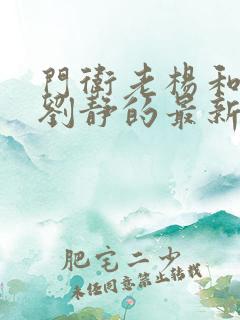 門衛老楊和
劉靜的最新
肥宅二少
未任同意禁止轉載